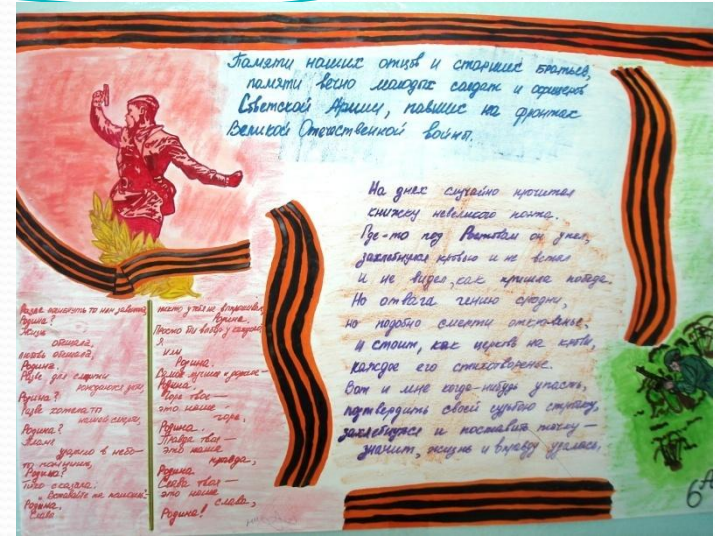 Памяти наших отцов и старших братьев,
памяти вечно молодых солдат и офицеров
Советской Армии, павших на фронтах
Великой Отечественной войны.
На днях случайно прочитал
книжку невеликого поэта.
Где-то под Ростовом он упал,
захлебнулся кровью и не встал
и не видел, как пришла победа.
Но отвага гению сродни,
но подобно смерти откровенье.
И стоит, как церковь на крови,
каждое его стихотворенье.
Вот и мне когда-нибудь упасть,
подтвердить своей судьбою строчку,
захлебнуться и поставить точку —
значит, жизнь и вправду удалась.
Разве погибнуть ты нам завещала,
Родина?
Жизнь
обещала,
любовь обещала,
Родина.
Разве для смерти
рождаются дети,
Родина?
Разве хотела ты
нашей смерти,
Родина?
Пламя
ударило в небо —
ты помнишь,
Родина?
Тихо сказала:
Вставайте на помощь
Родина.
Славы
никто у тебя не выпрашивал,
Родина.
Просто был выбор у каждого:
Я
или
Родина.
Самое лучшее и дорогое —
Родина.
Горе твоё —
это наше
горе,
Родина.
Правда твоя —
это наша
правда,
Родина.
Слава твоя —
это наша
слава,
Родина!
6 А